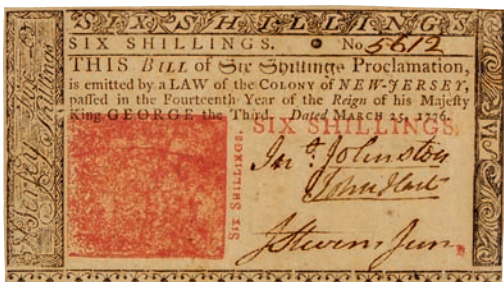 SIX SHILLINGS
SIX SHILLINGS. No 5612
THIS BILL of Six Shillings Proclamation,
is emitted by a LAW of the COLONY of NEW-JERSEY,
passed in the Fourteenth Year of the Reign of his Majesty
King GEORGE the Third. Dated MARCH 25, 1776.
SIX SHILLINGS.
SIX SHILLINGS.
Jno. Johnston
John Hart
J Stevens Junr
Jersey
Shillings